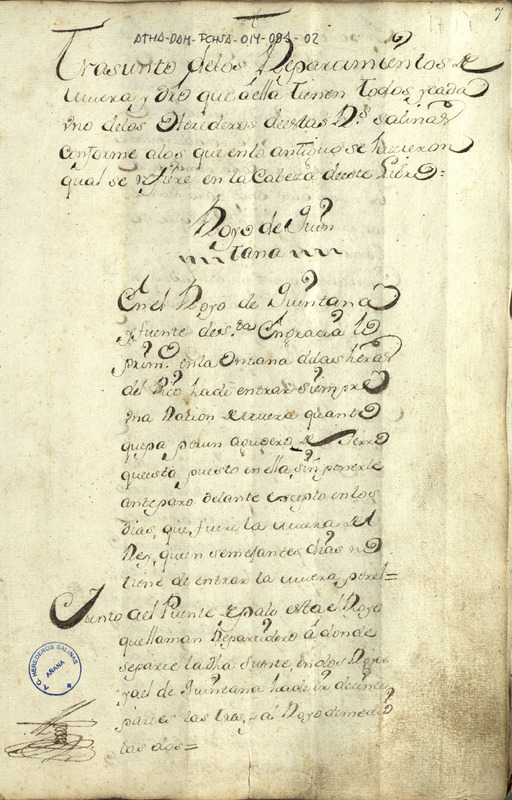 7
ATHA-DAH-FCHSA-014-081-02
Trasunto delos Repartimientos de
Muera, y dro que aella tienen todos, y cada
vno delos Herederos destas Rs. salinas
conforme alos que enlo antiguo se hizieron
qual se refiere en la Cabeza deeste Libro:
Royo de Quin
tana
En el Royo de Quintana
y fuente de sta. Engracia lo
prim. en la Ontana delas heras
del Rico hade entrar siempre
vna Racion de muera quanto
quepa por un agugero de fierro
que esta puesto en ella, sin ponerle
anteparo delante excepto en los
dias, que fuere la muera del
Rey, que en semejantes dias no
tiene de entrar la muera, por el=
Junto al Puente de palo esta el Royo
que llaman Repartidero á donde
separte la dha fuente, en dos Royos
y al de Quintana hade ir de cinco
partes las tres, y al Royo de medio
las dos=
A.C. HEREDEROS SALINAS
AÑANA